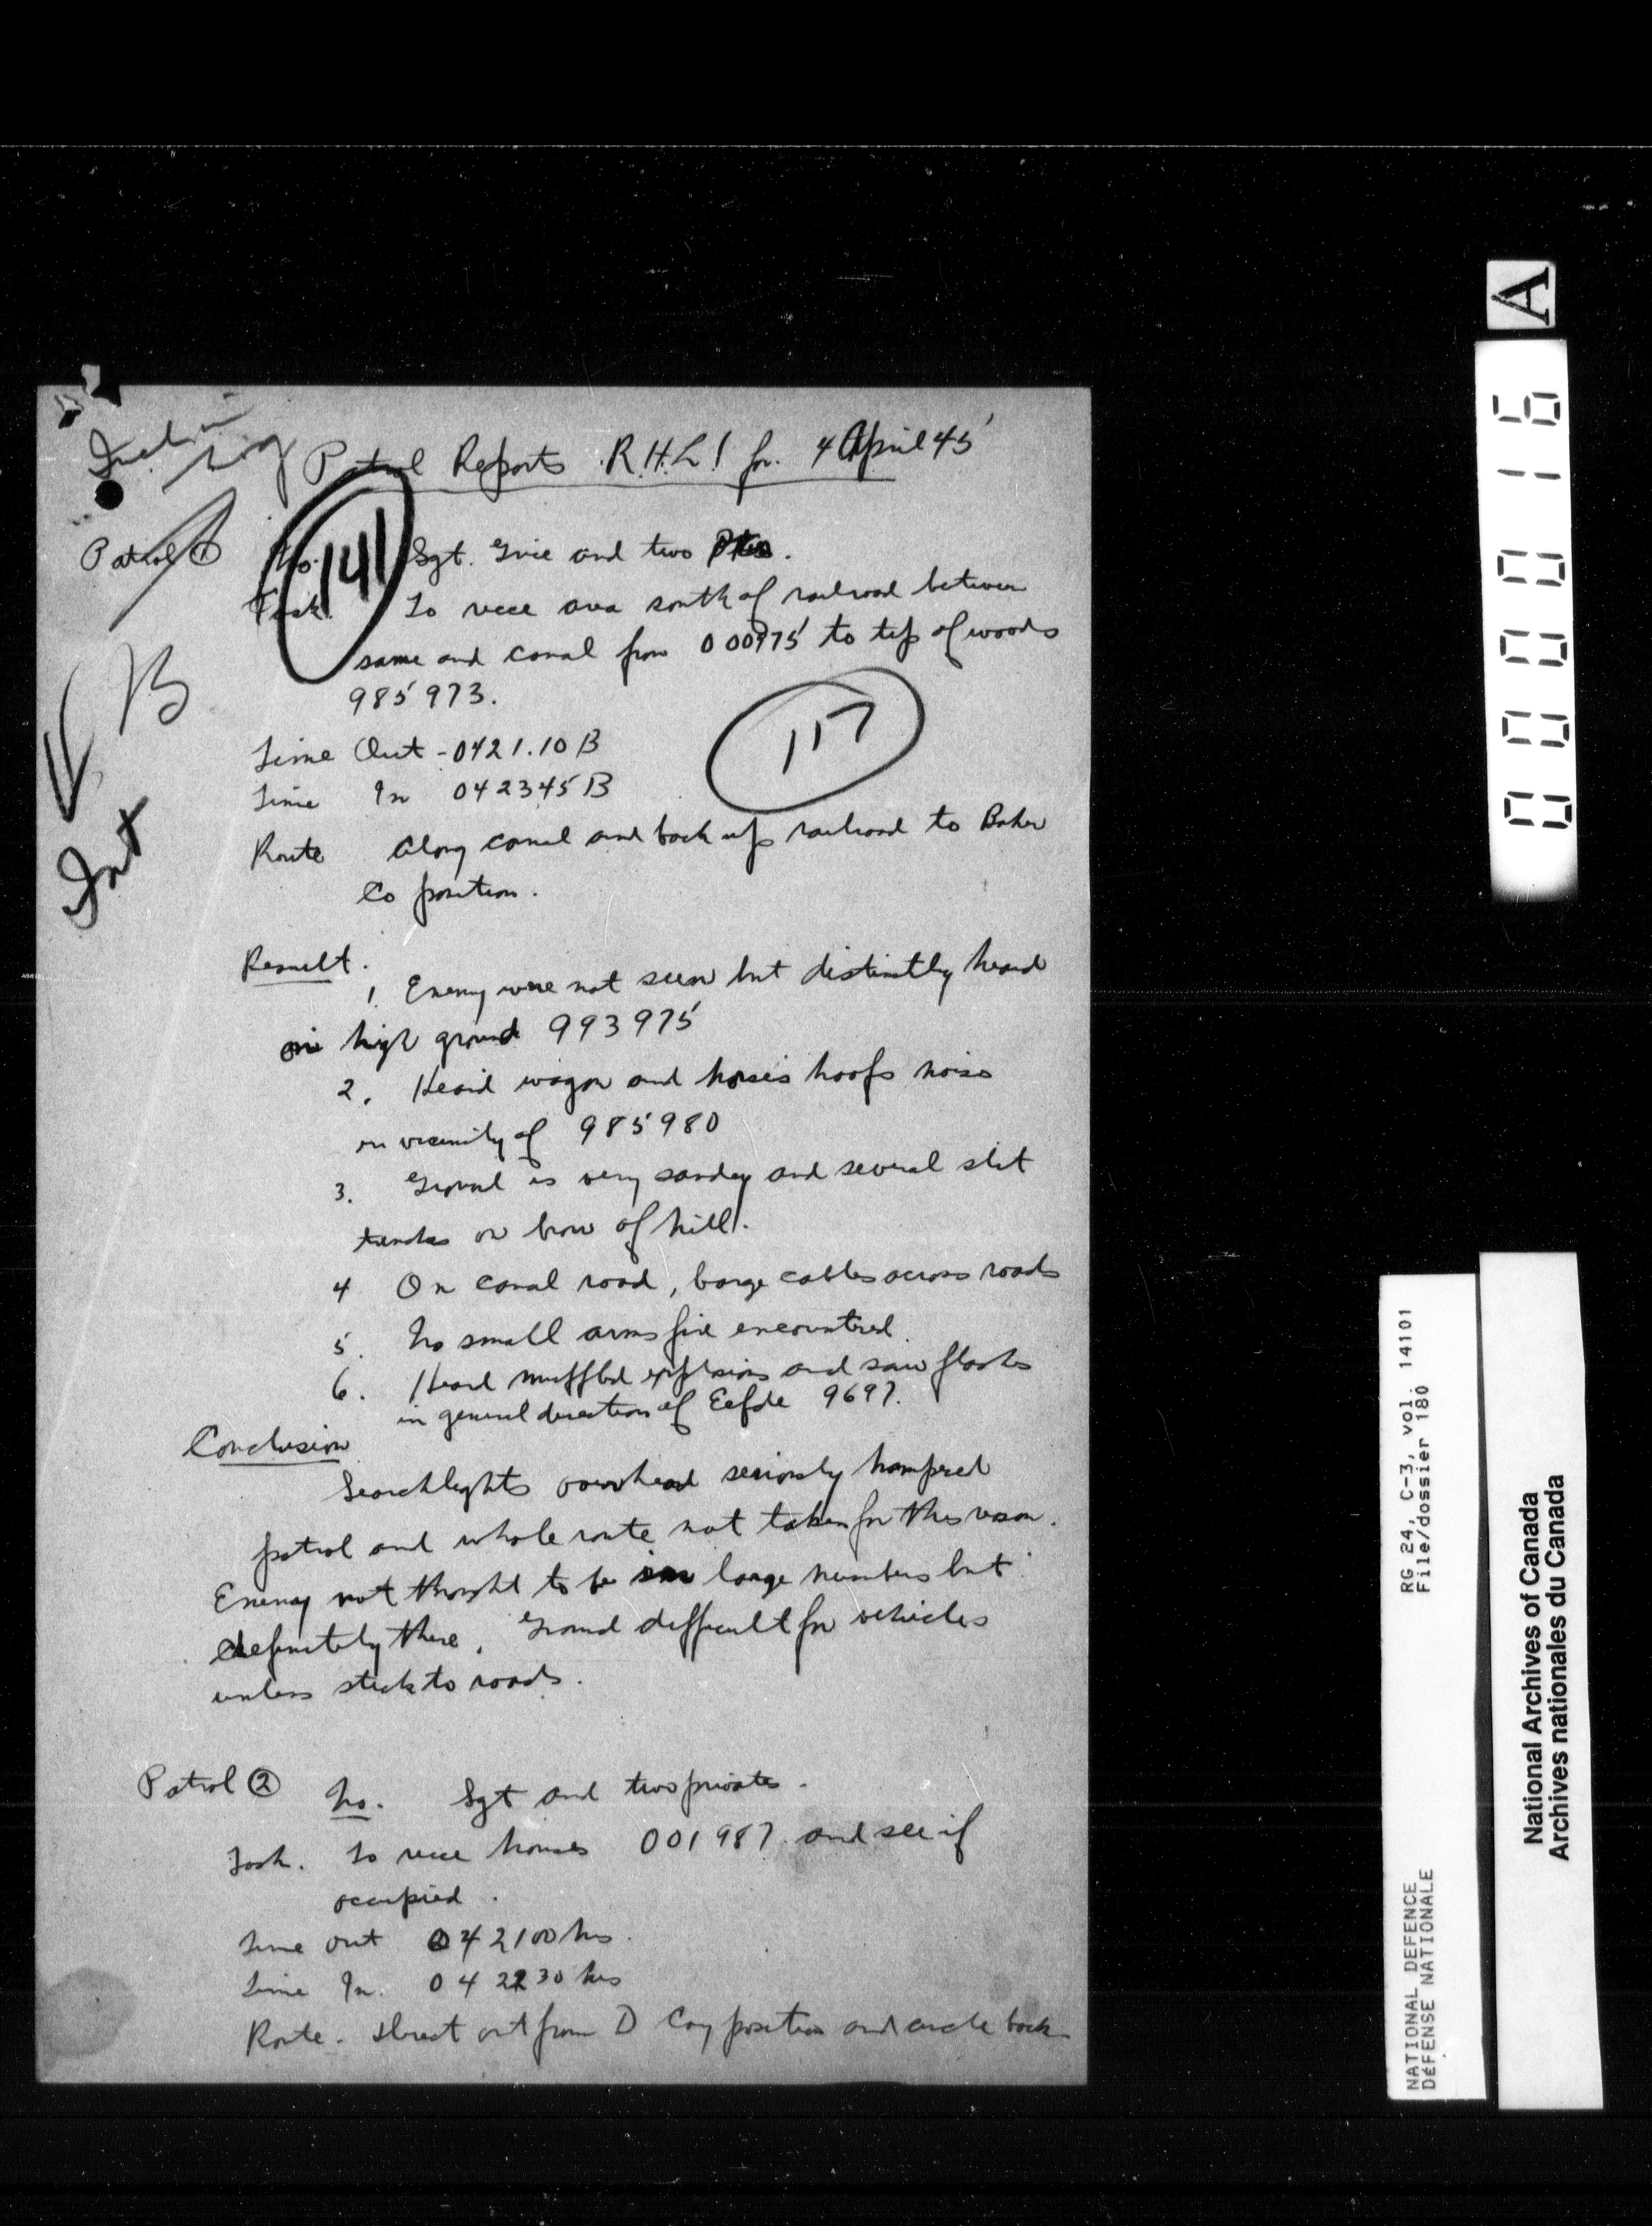 Patrol Reports R.H.L.I for 4 April 45
Patrol ① No. Sgt. and two Ptes.
141
Task. To recce area south of railroad between
same and canal from 000975 to tip of woods
985973.
117
B
Int
Time Out - 0421.10 B
Time In 042345 B
Route Along canal and back up railroad to Baker
Co position.
Result.
1. Enemy were not seen but distinctly heard
on high ground 993975
2. Heard wagon and horses hoofs noise
in vicinity of 985980
3. Ground is very sandy and several slit
trenches on brow of hill.
4 On canal road, barge cables across roads
5. No small arms fire encountered.
6. Heard muffled explosions and saw flashes
in general direction of Eefde 9697.
Conclusion
Searchlights overhead seriously hampered
patrol and whole route not taken for this reason.
Enemy not thought to be in large numbers but
definitely there. Ground difficult for vehicles
unless stick to roads.
Patrol ② No. Sgt and two privates.
Task. To recce houses 001987 and see if
occupied.
Time out 042100 hrs.
Time In. 042230 hrs
Route - Direct out from D Coy position and circle back
A
000016
RG 24, C-3, vol. 14101
File/dossier 180
NATIONAL DEFENCE
DÉFENSE NATIONALE
National Archives of Canada
Archives nationales du Canada